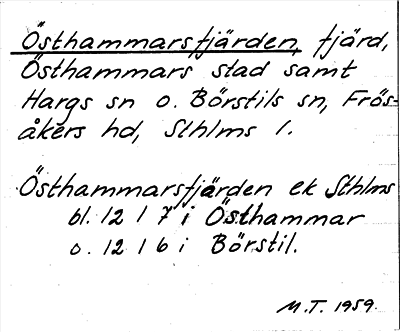 Östhammarsfjärden, fjärd,
Östhammars stad samt
Hargs sn o. Börstils sn, Frös-
åkers hd, Sthlms l.
Östhammarsfjärden ek Sthlms
bl. 12 l 7 i Östhammar
o. 12 l 6 i Börstil.
M.T. 1959.